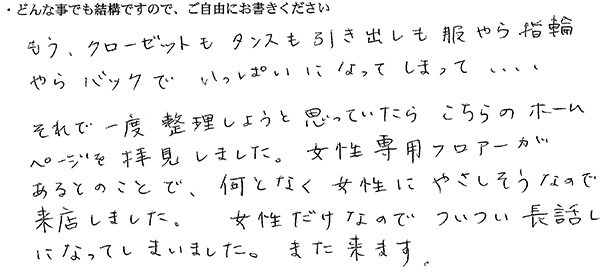 ・どんな事でも結構ですので、ご自由にお書きください
もう、クローゼットも タンスも 引き出しも 服やら 指輪
やら バックで いっぱいに なって しまって ､､､､
それで 一度 整理しようと 思っていたら こちらの ホーム
ページを 拝見しました。 女性専用フロアーが
あるとのことで、 何となく 女性に やさしそうなので
来店しました。 女性だけなので ついつい 長話し
になってしまいました。 また 来ます.